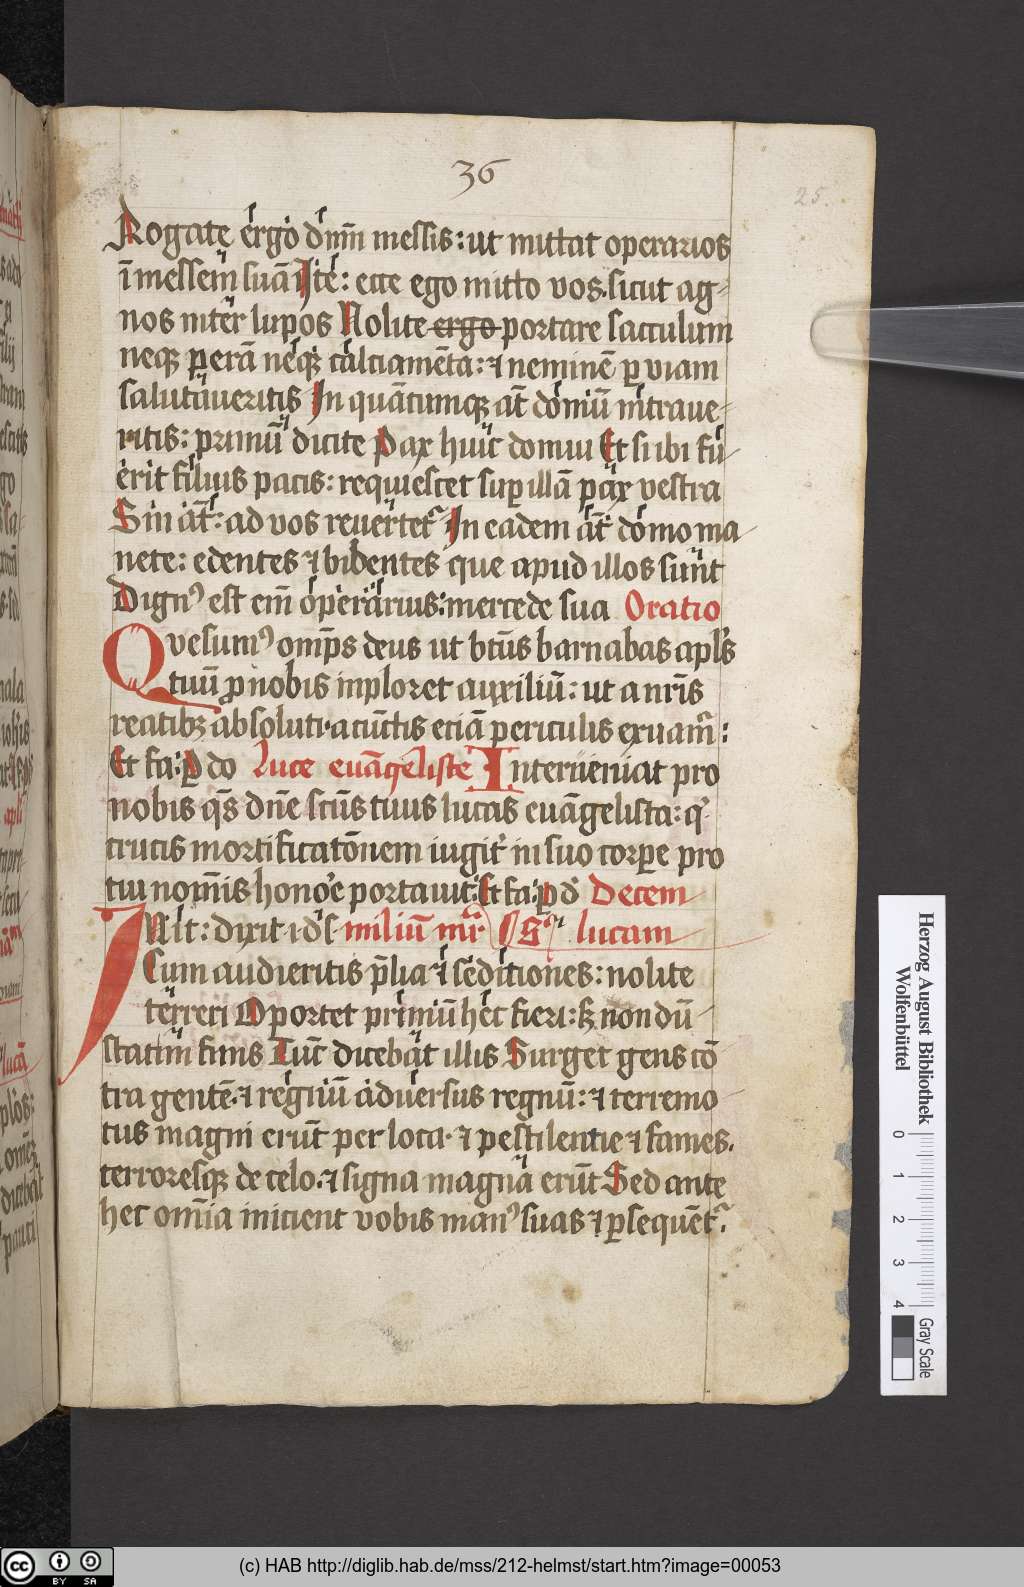 36
25.
Rogate ergo dn̄m messis: ut mittat operarios
ī messem suā Itē: ecce ego mitto vos. sicut ag-
nos inter lupos Nolite ergo portare sacculum
neqꝫ perā neqꝫ calciamēta: ⁊ neminē ꝑ viam
salutaveritis In quācumqꝫ at̄ domū intrave-
ritis: primū dicite Pax huic domui Et si ibi fu-
erit filius pacis: requiescet suꝑ illā pax vestra
Sin at̄: ad vos revertet In eadem at̄ domo ma
nete: edentes ⁊ bibentes que apud illos sunt
Dignꝰ est em̄ operarius: mercede sua Oratio
Quesumꝰ omp̄s deus ut btūs barnabas apls
tuū ꝓ nobis inploret auxiliū: ut a nrīs
reatibꝫ absoluti. a cūctis eciā periculis exuam:
Et fa: p do Luce euāgeliste Interueniat pro
nobis qs̄ dn̄e scūs tuus lucas euāgelista: q
crucis mortificatōnem iugit in suo corpe pro
tui nomīs honore portauit: Et fa: p d Decem
milū mr̄ S lucam
In ilt: dixit ids
Cum audieritis p̄lia ⁊ seditiones: nolite
terreri Oportet primū hec fieri: sꝫ nondū
statim finis Tuc̄ dicebat illis Surget gens cō
tra gentē. ⁊ regnū adversus regnū: ⁊ terremo
tus magni erūt per loca. ⁊ pestilentie ⁊ fames.
terroresqꝫ de celo. ⁊ signa magna erūt Sed ante
hec omīa inicient vobis manꝰ suas ⁊ ꝑsequēt.
Herzog August Bibliothek
Wolfenbüttel
0 1 2 3 4
Gray Scale
cc BY SA
(c) HAB http://diglib.hab.de/mss/212-helmst/start.htm?image=00053